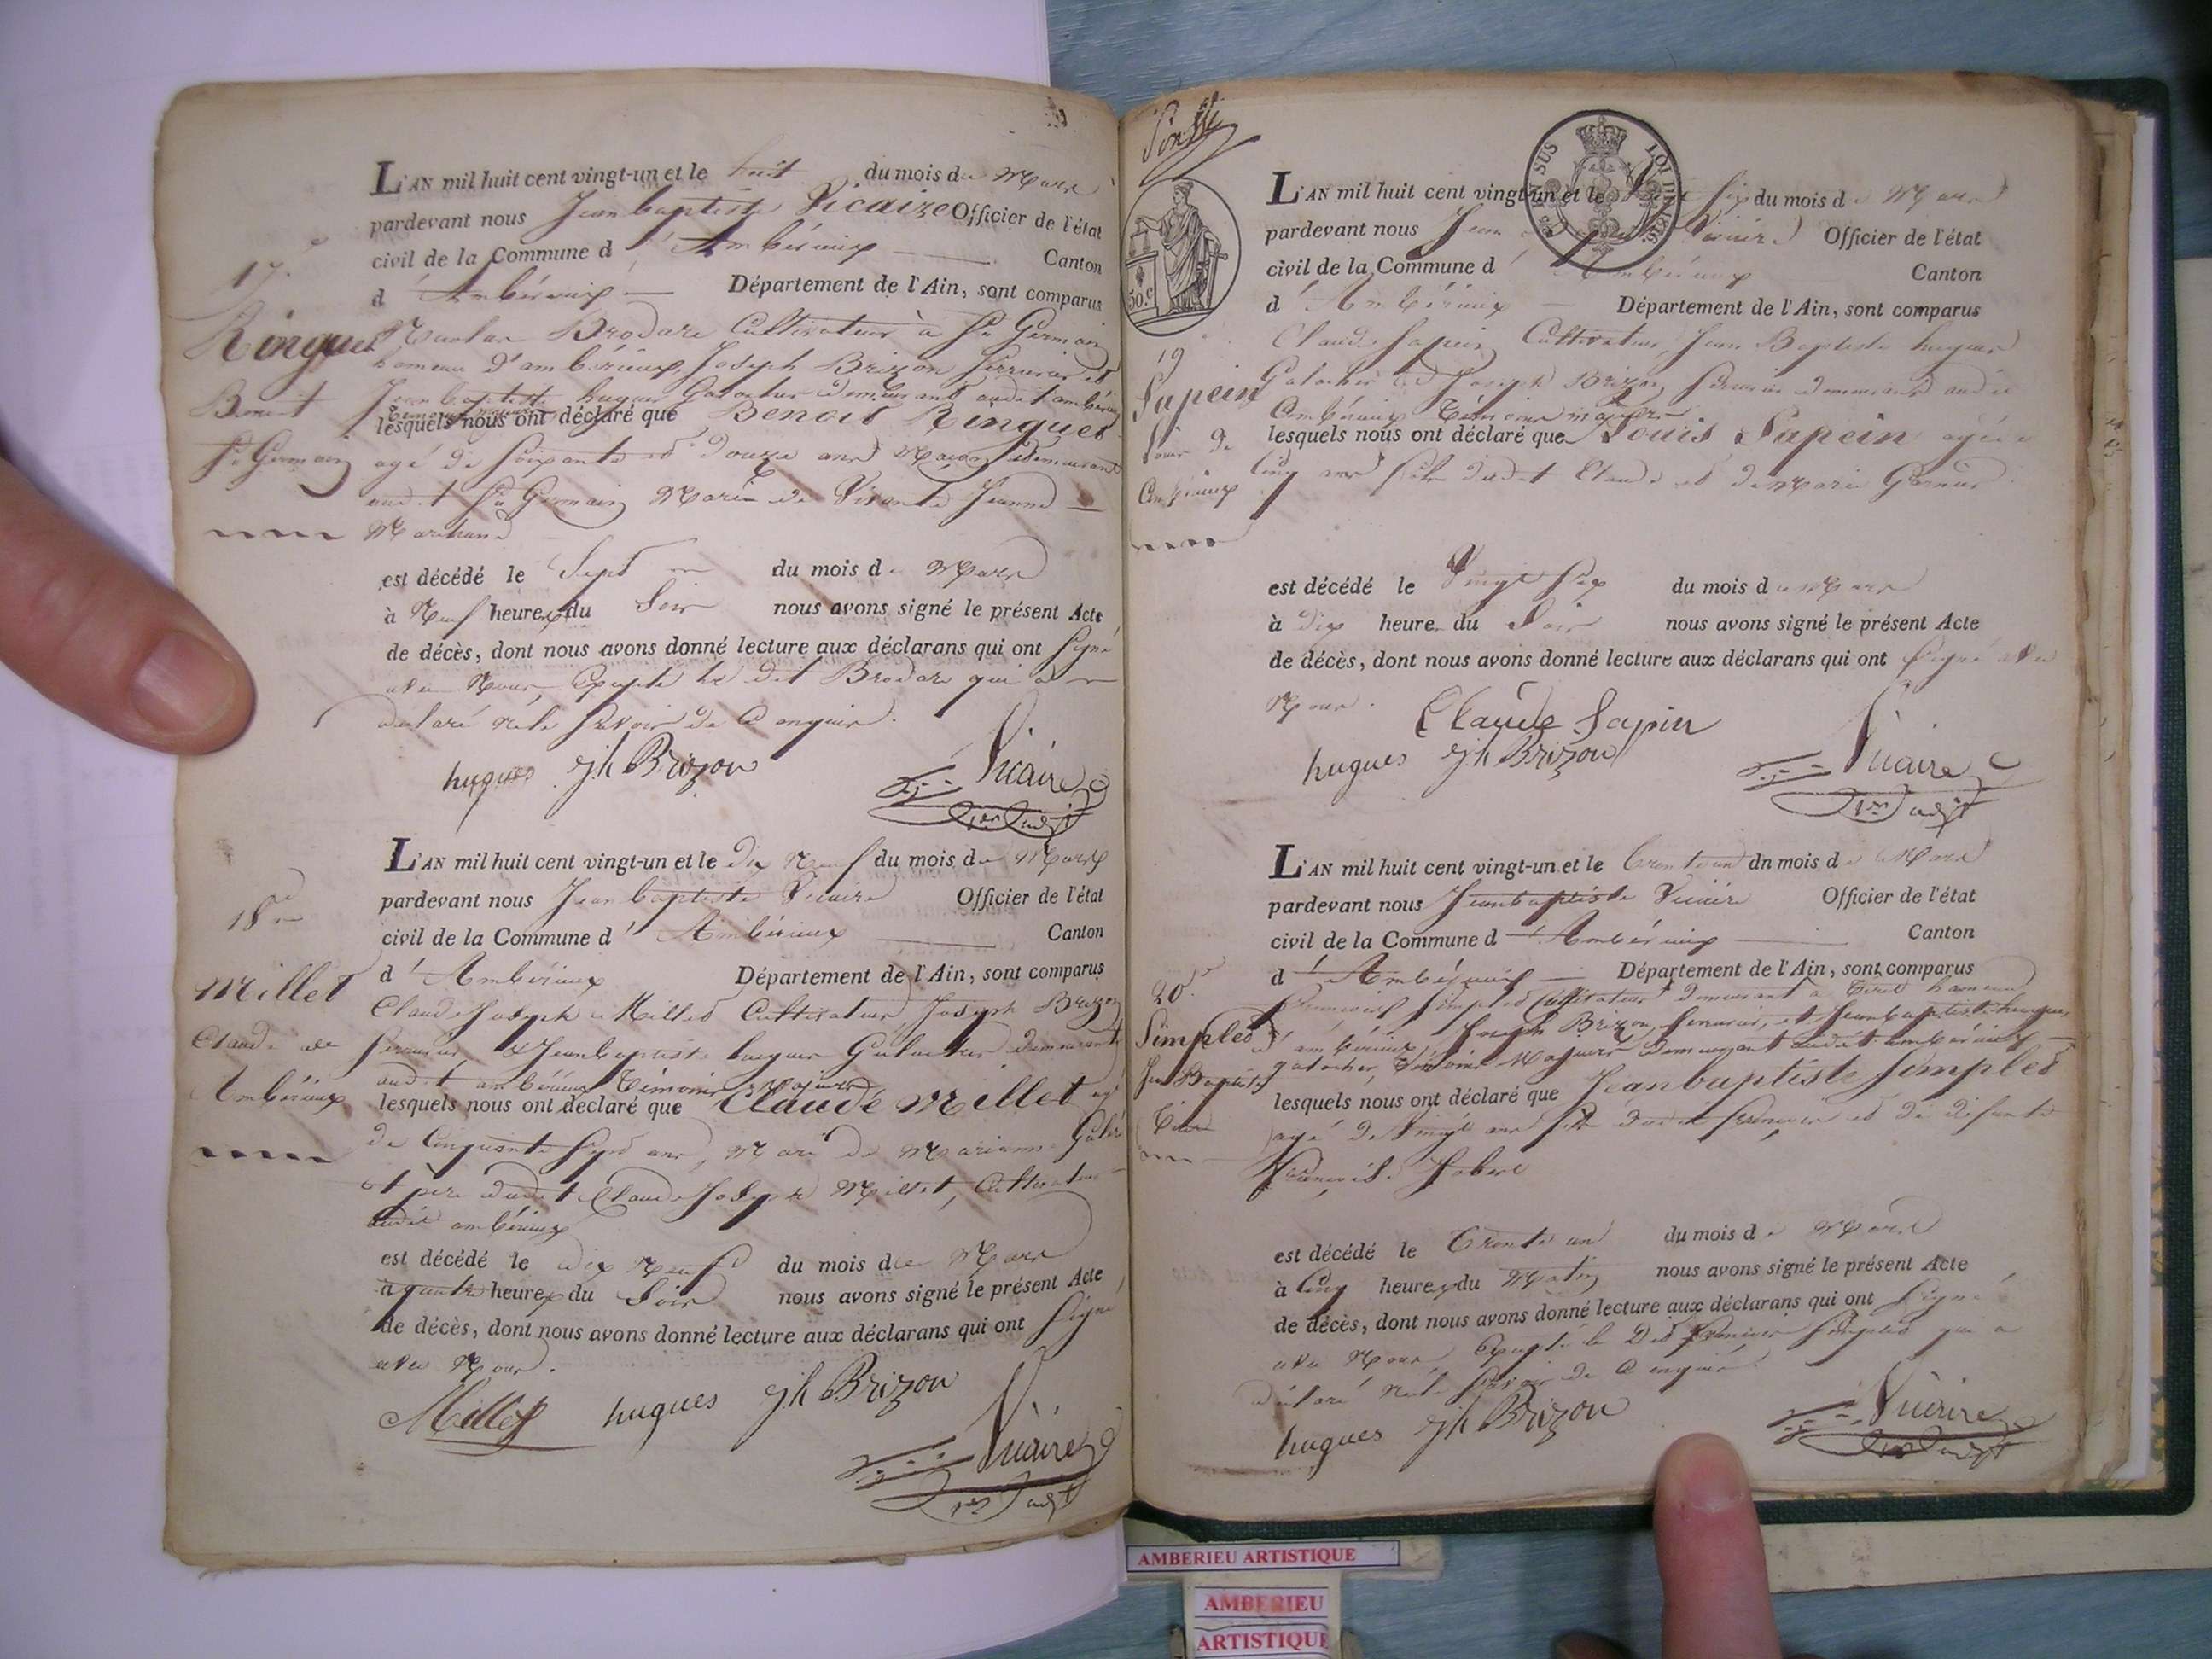 L'AN mil huit cent vingt-un et le huit du mois de Mars
pardevant nous Jean baptiste Vicaire Officier de l'état
civil de la Commune d'Ambérieux Canton
d'Ambérieux Département de l'Ain, sont comparus
17.e
Ringuet
Benoit
St Germain
Nicolas Brodare Cultivateur à St Germain
hameau d'ambérieux, Joseph Brizon Serrurier et
Jean baptiste hugues Galocher demeurant audit ambérieux
témoins majeurs
lesquels nous ont déclaré que Benoit Ringuet
agé de soixante et douze ans Maçon demeurant
audit St Germain Marié de Vivante Jeanne
Marchand
est décédé le Sept du mois de Mars
à Neuf heures du Soir nous avons signé le présent Acte
de décès, dont nous avons donné lecture aux déclarans qui ont Signé
avec Nous, Excepté le dit Brodare qui a
declaré ne le savoir de ce enquis.
hugues jh Brizon Vicaire
1er adjt
L'AN mil huit cent vingt-un et le dix Neuf du mois de Mars
pardevant nous Jean baptiste Vicaire Officier de l'état
civil de la Commune d'Ambérieux Canton
d'Ambérieux Département de l'Ain, sont comparus
18e
Millet
Claude de
Ambérieux
Claude Joseph Millet Cultivateur, Joseph Brizon
Serrurier & Jean baptiste hugues Galocher demeurants
audit ambérieux Témoins majeurs
lesquels nous ont déclaré que Claude Millet agé
de Cinquante Sept ans, Mari de Marianne
et père dudit Claude Joseph Millet, Cultivateur
audit ambérieux
est décédé le dix Neuf du mois de Mars
à quatre heures du Soir nous avons signé le présent Acte
de décès, dont nous avons donné lecture aux déclarans qui ont Signé
avec Nous.
Millet hugues jh Brizon
Vicaire
1er adjt
50.c
L'AN mil huit cent vingt-un et le Vingt Six du mois de Mars
pardevant nous Jean baptiste Vicaire Officier de l'état
civil de la Commune d'Ambérieux Canton
d'Ambérieux Département de l'Ain, sont comparus
19
Sapein
Louis de
Ambérieux
Claude Sapein Cultivateur, Jean Baptiste hugues
Galocher et Joseph Brizon, Serrurier demeurants audit
Ambérieux Témoins majeurs
lesquels nous ont déclaré que Louis Sapein agé de
Cinq ans fils dudit Claude et de Marie
est décédé le Vingt Six du mois de Mars
à dix heures du Soir nous avons signé le présent Acte
de décès, dont nous avons donné lecture aux déclarans qui ont Signé avec
Nous.
Claude Sapin
hugues jh Brizon Vicaire
1er adjt
L'AN mil huit cent vingt-un et le trente un dn mois de Mars
pardevant nous Jean baptiste Vicaire Officier de l'état
civil de la Commune d'Ambérieux Canton
d'Ambérieux Département de l'Ain, sont comparus
20.e
Simplet
Jean Baptiste
François Simplet Cultivateur demeurant a Tiret hameau
d'ambérieux, Joseph Brizon, Serrurier, et Jean baptiste hugues
galocher, Témoins Majeurs demeurant audit ambérieux
lesquels nous ont déclaré que Jean baptiste Simplet
agé de Vingt ans fils dudit françois et de défunte
est décédé le Trente un du mois de Mars
à Cinq heures du Matin nous avons signé le présent Acte
de décès, dont nous avons donné lecture aux déclarans qui ont Signé
avec Nous, Excepté le dit françois Simplet qui a
déclaré ne le Savoir de ce enquis.
hugues jh Brizon Vicaire
1er adjt
AMBERIEU ARTISTIQUE
AMBERIEU
ARTISTIQUE